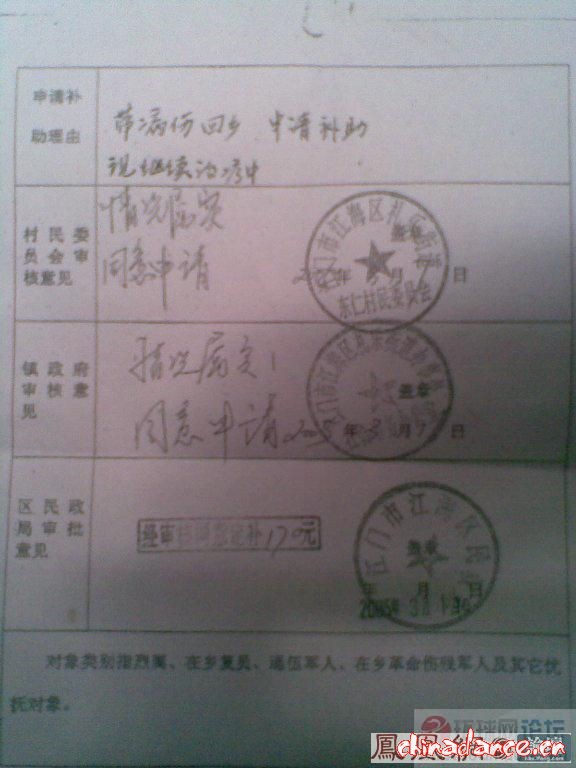 申请补
助理由
带病伤回乡 申请补助
现继续治疗中
村民委
员会审
核意见
情况属实
同意申请
江门市江海区礼乐街道
东仁村民委员会
盖章
年 月 日
镇政府
审核意
见
情况属实!
同意申请
盖章
2005 年 3 月 7 日
区民政
局审批
意见
经审核同意定补170元
江门市江海区民
盖章
年 月 日
对象类别指烈属、在乡复员、退伍军人、在乡革命伤残军人及其它优
抚对象。
环球网论坛
鳳凰網
chinadance.cn